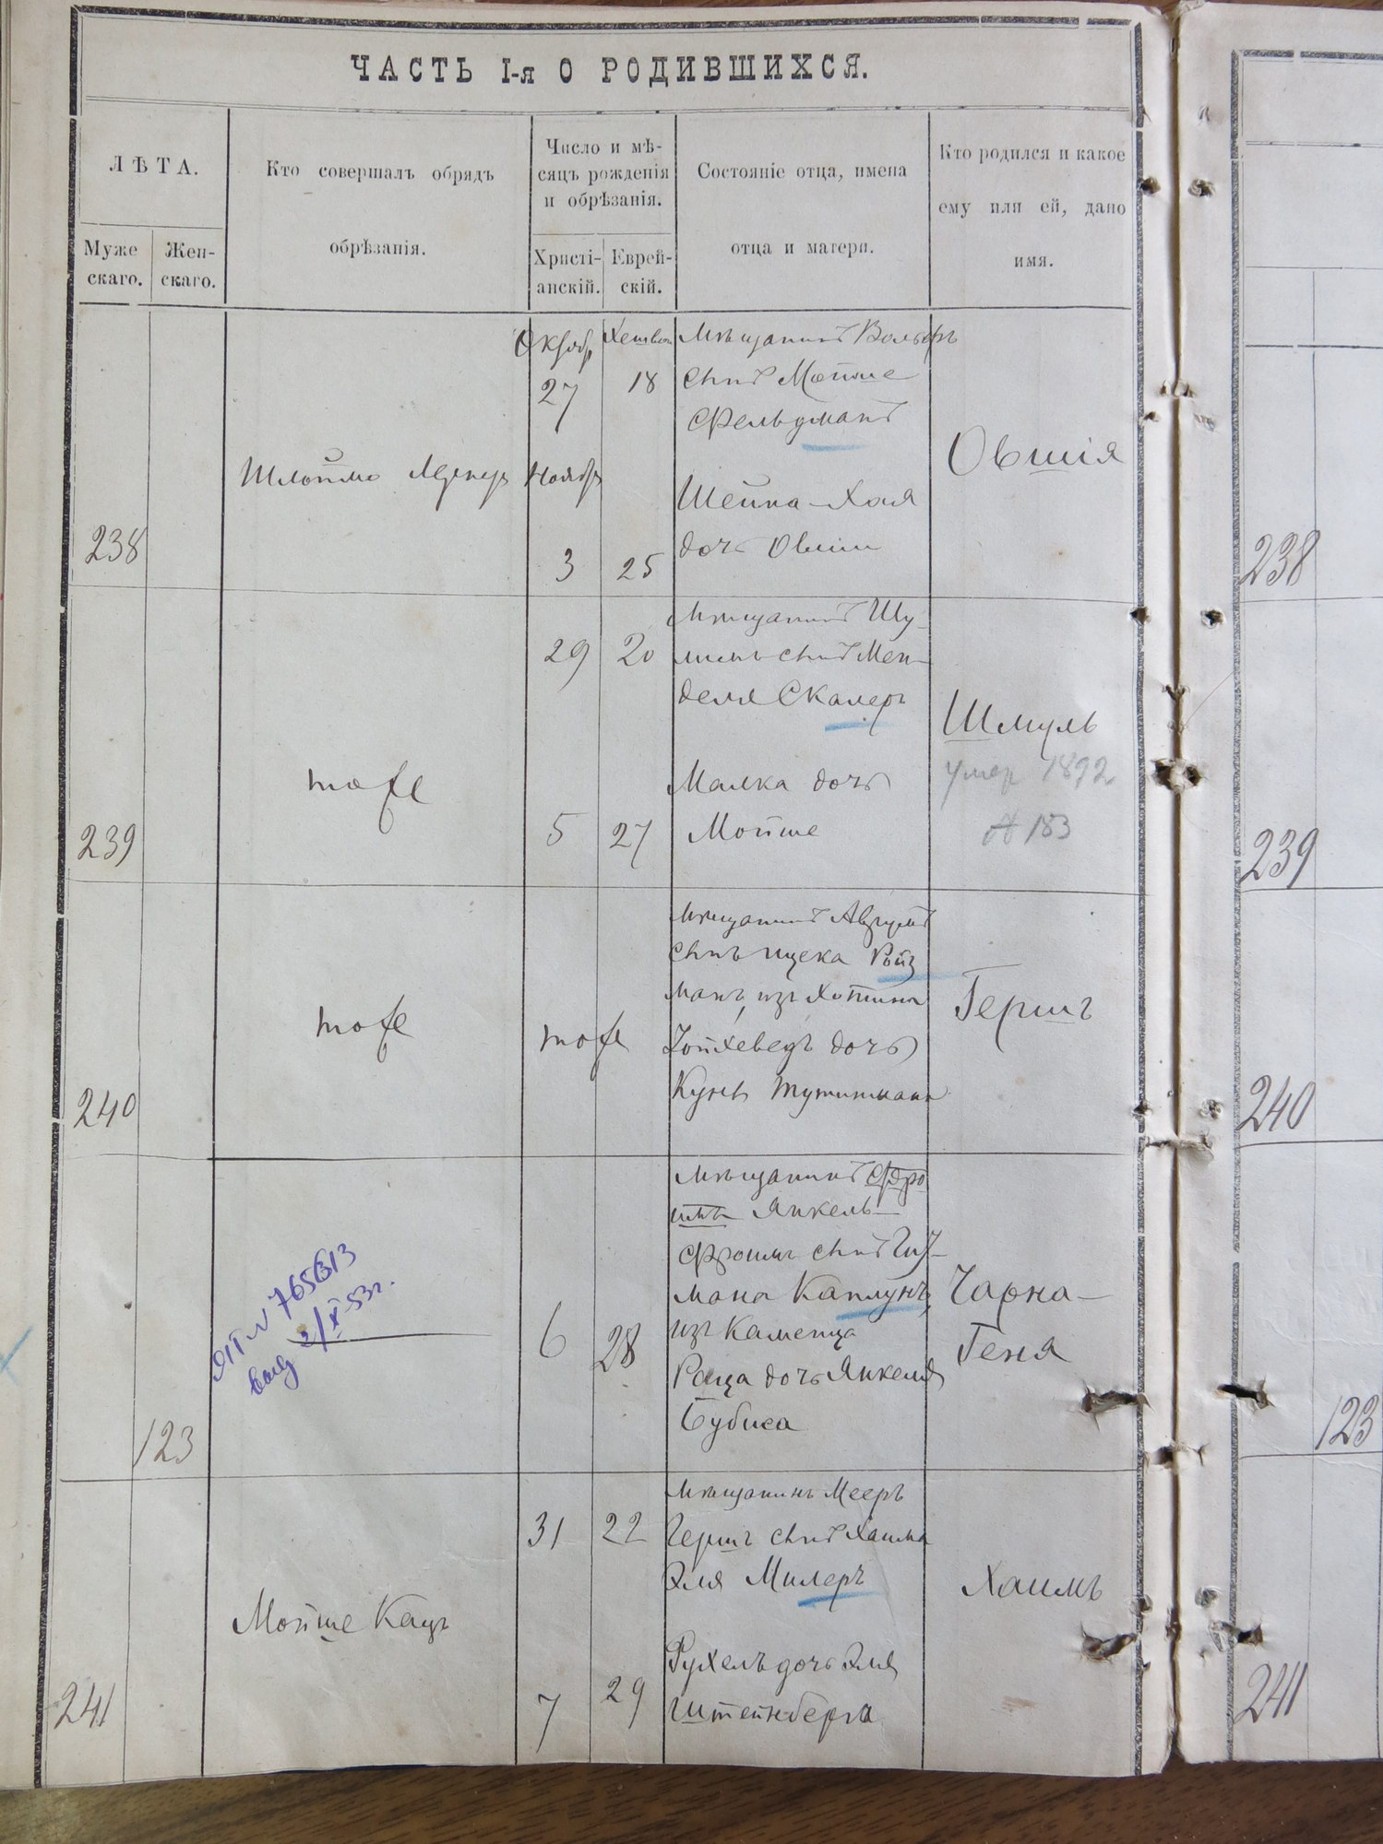 ЧАСТЬ I-я О РОДИВШИХСЯ.
ЛѢТА.
Муже
скаго.
Жен-
скаго.
Кто совершалъ обрядъ
обрѣзанія.
Число и мѣ-
сяцъ рожденія
и обрѣзанія.
Христі-
анскій.
Еврей-
скій.
Состояніе отца, имена
отца и матери.
Кто родился и какое
ему или ей, дано
имя.
238
Шлойме
Октябр
27
Ноябр
3
Хешван
18
25
Мѣщанинъ Вольфъ
сынъ Мойше
Фельдманъ
Шейна-Хая
дочь Овшии
Овшія
238
239
тоже
29
5
20
27
Мѣщанинъ Шу-
лимъ сынъ Мен-
деля Скалеръ
Малка дочь
Мойше
Шмуль
умер 1892
№ 183
239
240
тоже
тоже
Мѣщанинъ
сынъ Ицека Ройз
манъ, изъ Хотина
Іойхеведъ дочь
Герш
240
123
765613
выд 2/X 53г.
6
28
Мѣщанинъ Фро
имъ Янкель-
Фроимъ сынъ Гит-
мана Каплунъ,
изъ Каменца
дочь Янкеля
Бубиса
Чарна-
Геня
123
241
Мойше Кацъ
31
7
22
29
Мѣщанинъ Мееръ
Гершъ сынъ Хаима
Эля Милеръ
Рухель дочь Эля
Штейнберга
Хаимъ
241